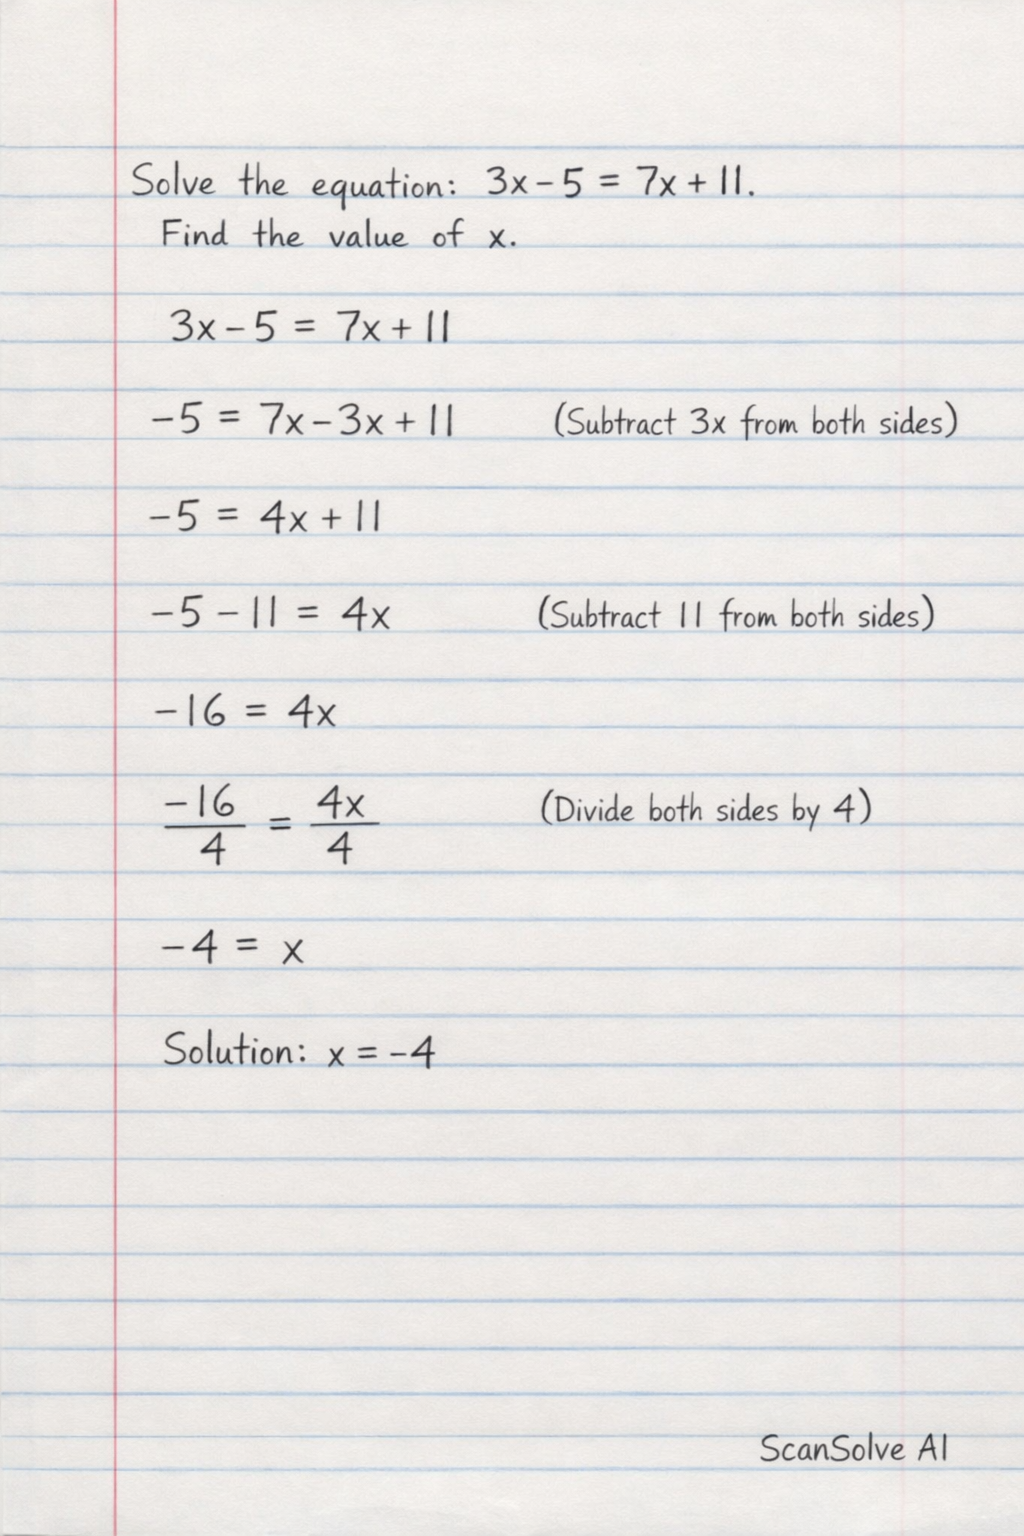 Solve the equation: 3x - 5 = 7x + 11.
Find the value of x.
3x - 5 = 7x + 11
-5 = 7x - 3x + 11 (Subtract 3x from both sides)
-5 = 4x + 11
-5 - 11 = 4x (Subtract 11 from both sides)
-16 = 4x
-16/4 = 4x/4 (Divide both sides by 4)
-4 = x
Solution: x = -4
ScanSolve AI